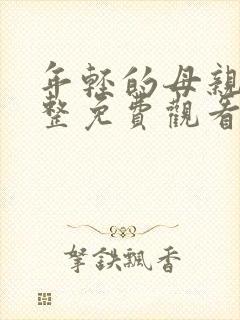 年軽的母親
整免費觀看
拏鉄飄香